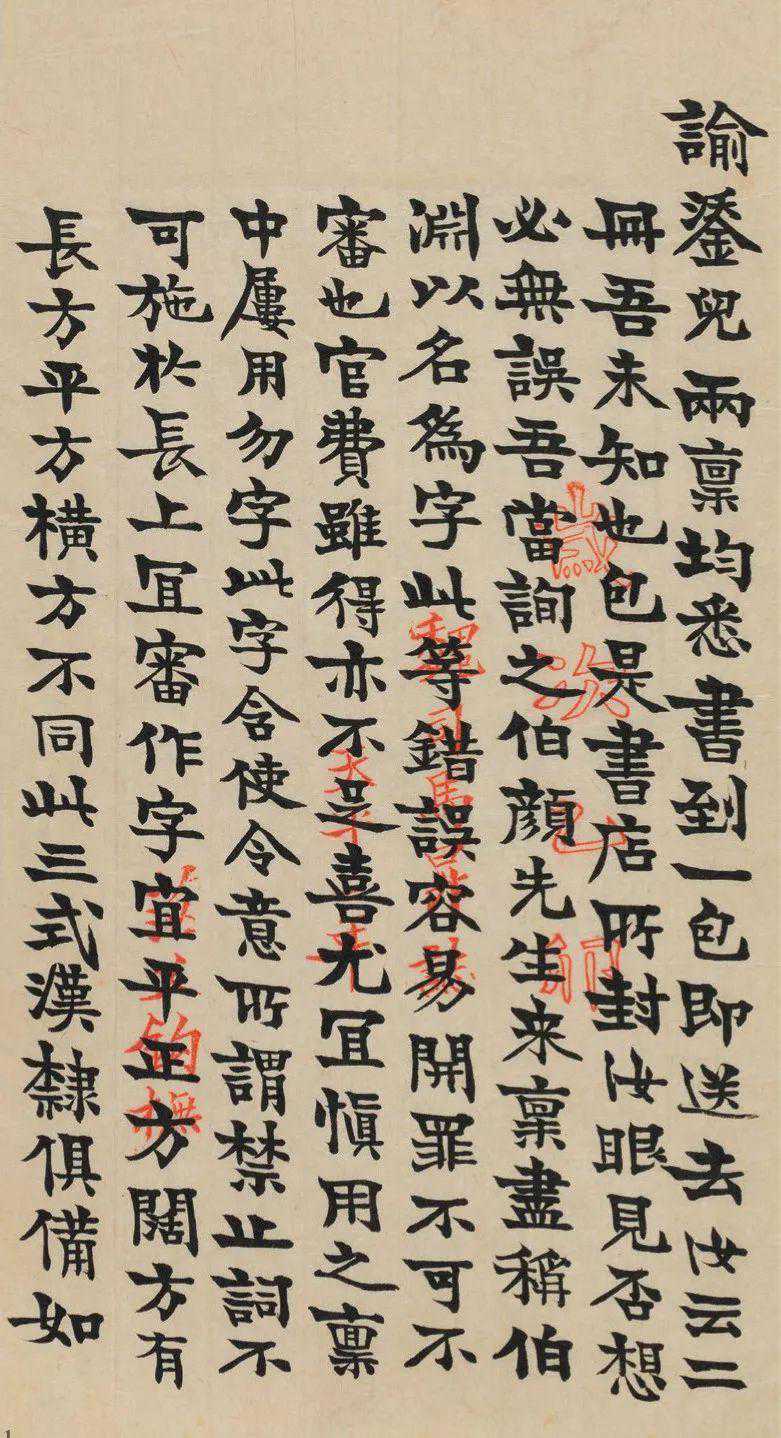 諭兒兩稟均悉書到一包即送去汝云二
冊吾未知也包是書店所封汝眼見否想
必無誤吾當詢之伯顏先生来稟盡稱伯
淵以名為字此等錯誤容易開罪不可不
審也官費雖得亦不足喜尤冝慎用之稟
中屢用勿字此字含使令意所謂禁止詞不
可施於長上冝審作字宜平正方闊方有
長方平方橫方不同此三式漢隸俱備如
歲次己卯